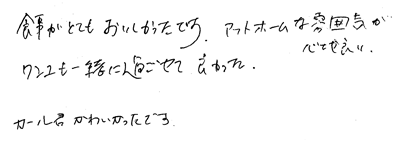 食事がとてもおいしかったです。アットホームな雰囲気が
とても良い。
ワンコも一緒に過ごせて良かった。
カール君かわいかったです。